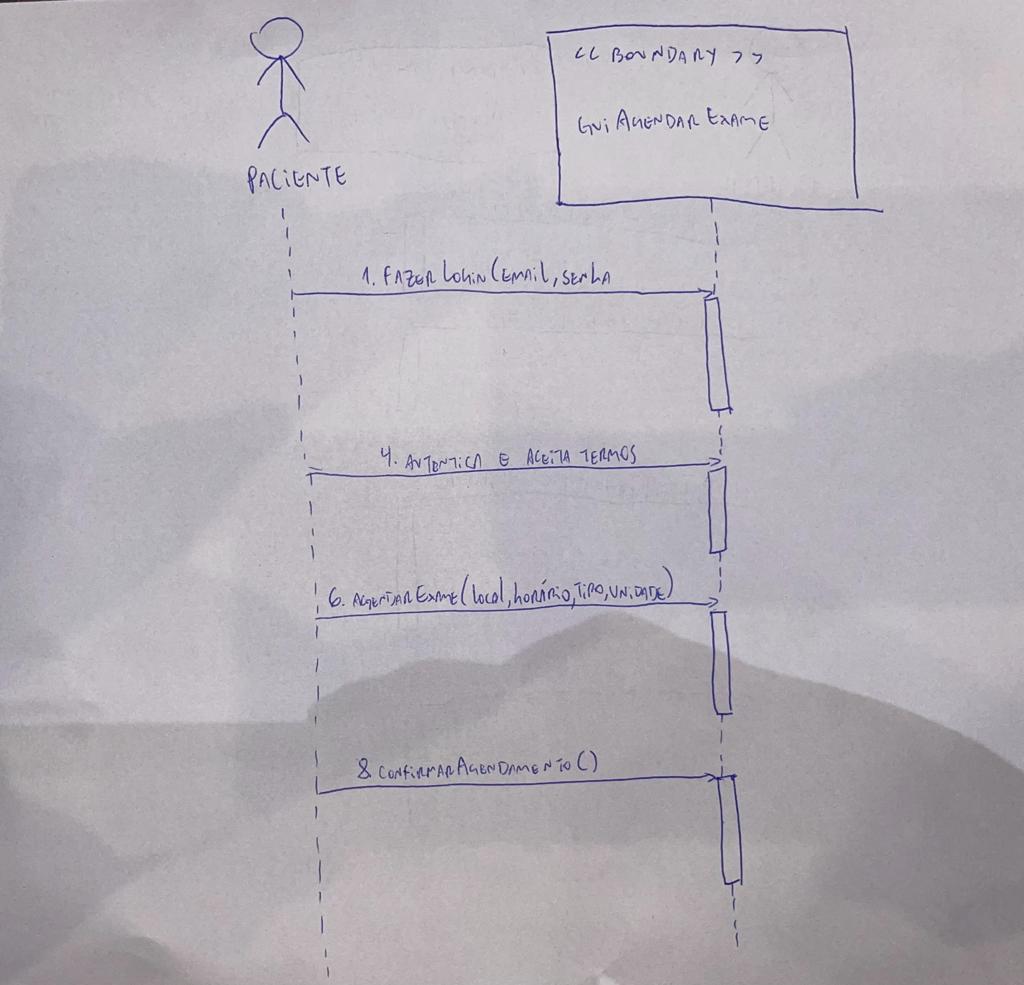 << BOUNDARY >>
GUI AGENDAR EXAME
PACIENTE
1. FAZER LOGIN (EMAIL, SENHA
4. AUTENTICA E ACEITA TERMOS
6. AGENDAR EXAME (local, horário, TIPO, UNIDADE)
8 CONFIRMAR AGENDAMENTO ()